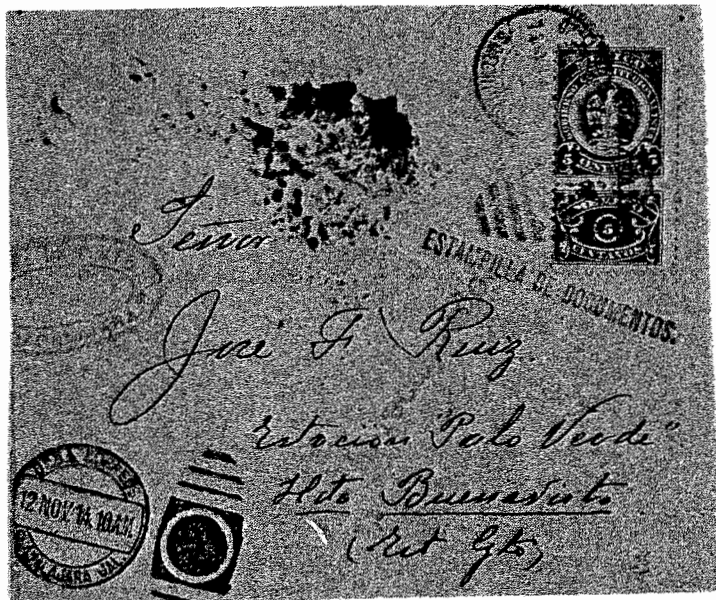 5 5
5
CENTAVOS
ESTAMPILLA DE DOCUMENTOS.
Señor
José F Ruiz
Estacion "Palo Verde"
Hda Buenavista
(Est Gto)
12 NOV 14. 10 A.M.
GUADALAJARA JAL.